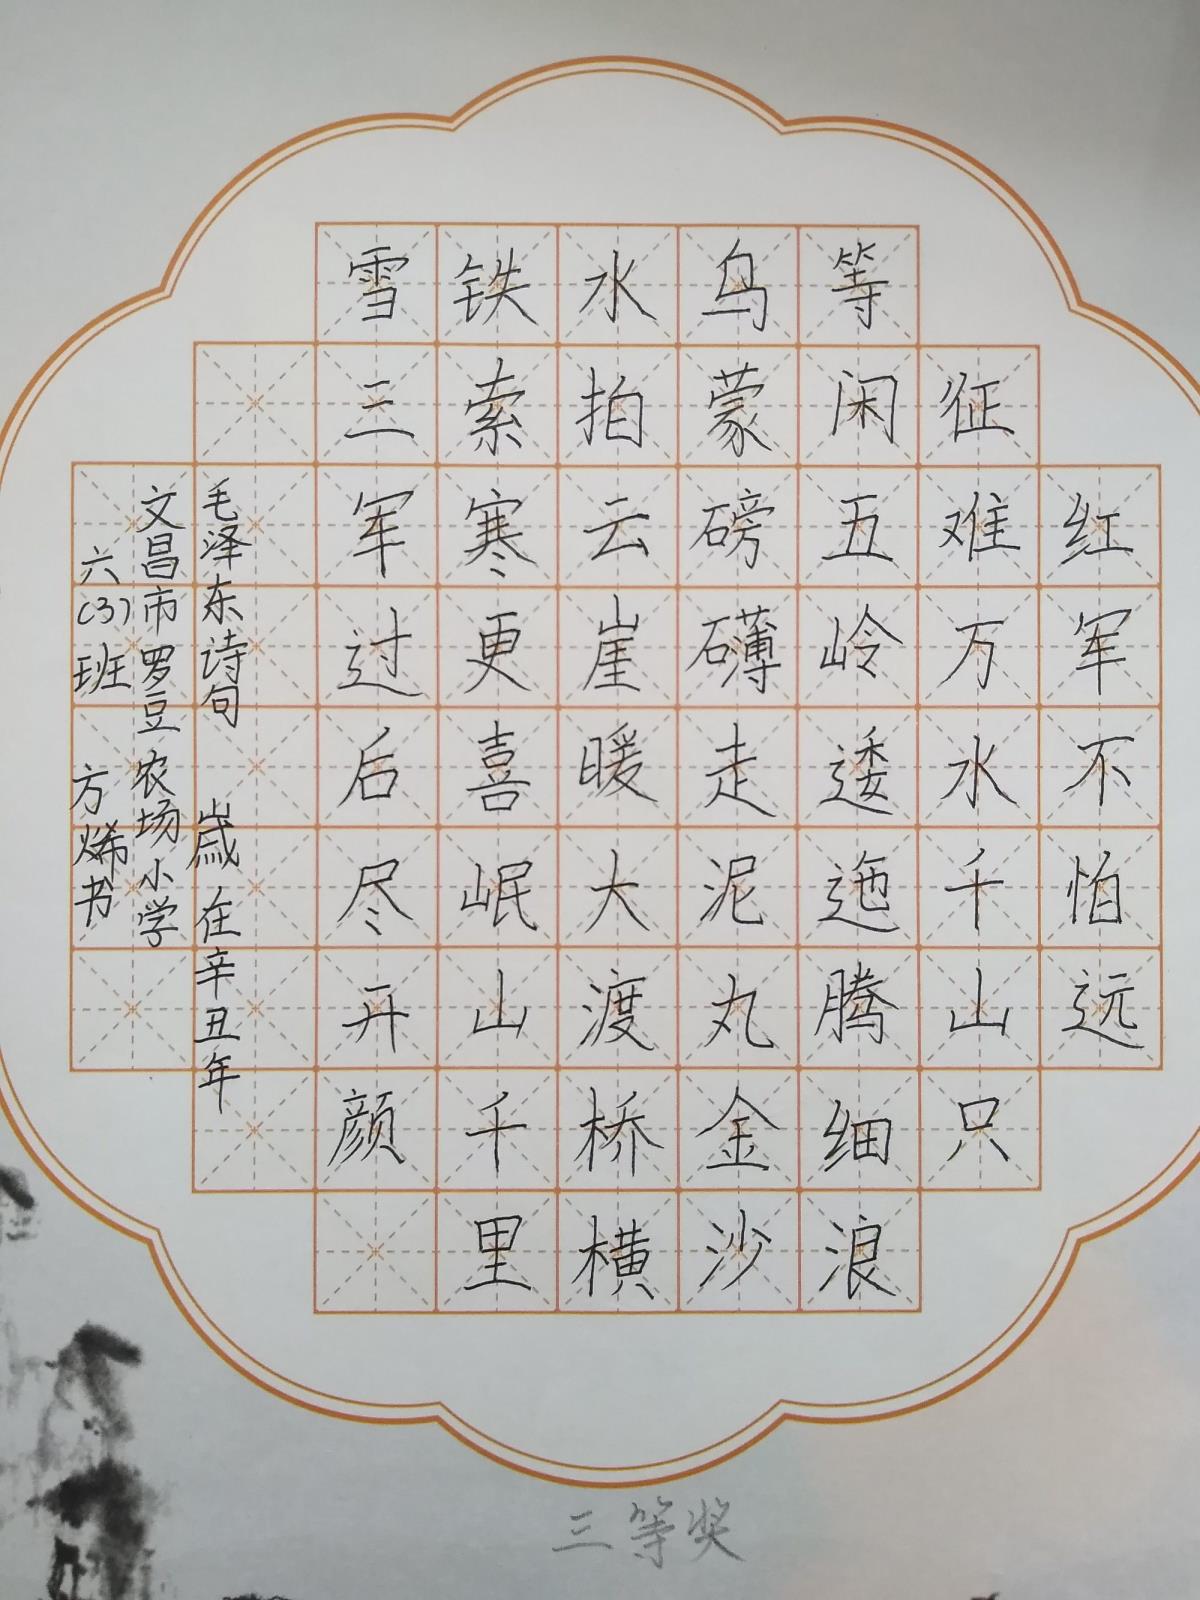 红军不怕远
征难万水千山只
等闲五岭逶迤腾细浪
乌蒙磅礴走泥丸金沙
水拍云崖暖大渡桥横
铁索寒更喜岷山千里
雪三军过后尽开颜
毛泽东诗句 岁在辛丑年
文昌市罗豆农场小学
六(3)班 方烯书
三等奖